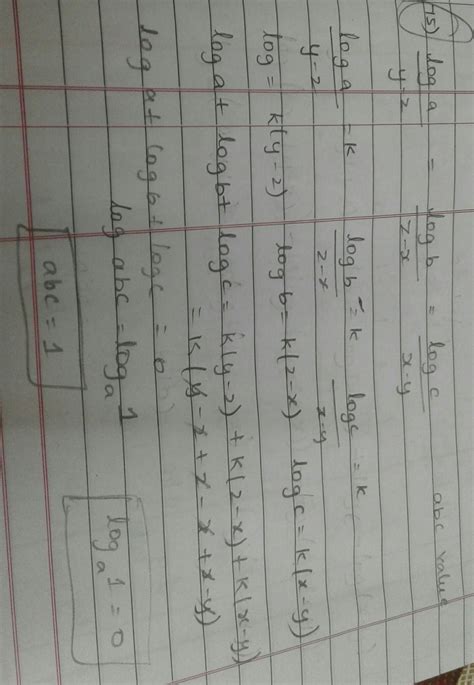 15) log a / y-z = log b / z-x = log c / x-y abc value
log a / y-z = k log b / z-x = k log c / x-y = k
log = k(y-z) log b = k(z-x) log c = k(x-y)
log a + log b + log c = k(y-z) + k(z-x) + k(x-y)
= k(y - z + z - x + x - y)
log a + log b + log c = 0
log abc = log_a 1
log_a 1 = 0
abc = 1